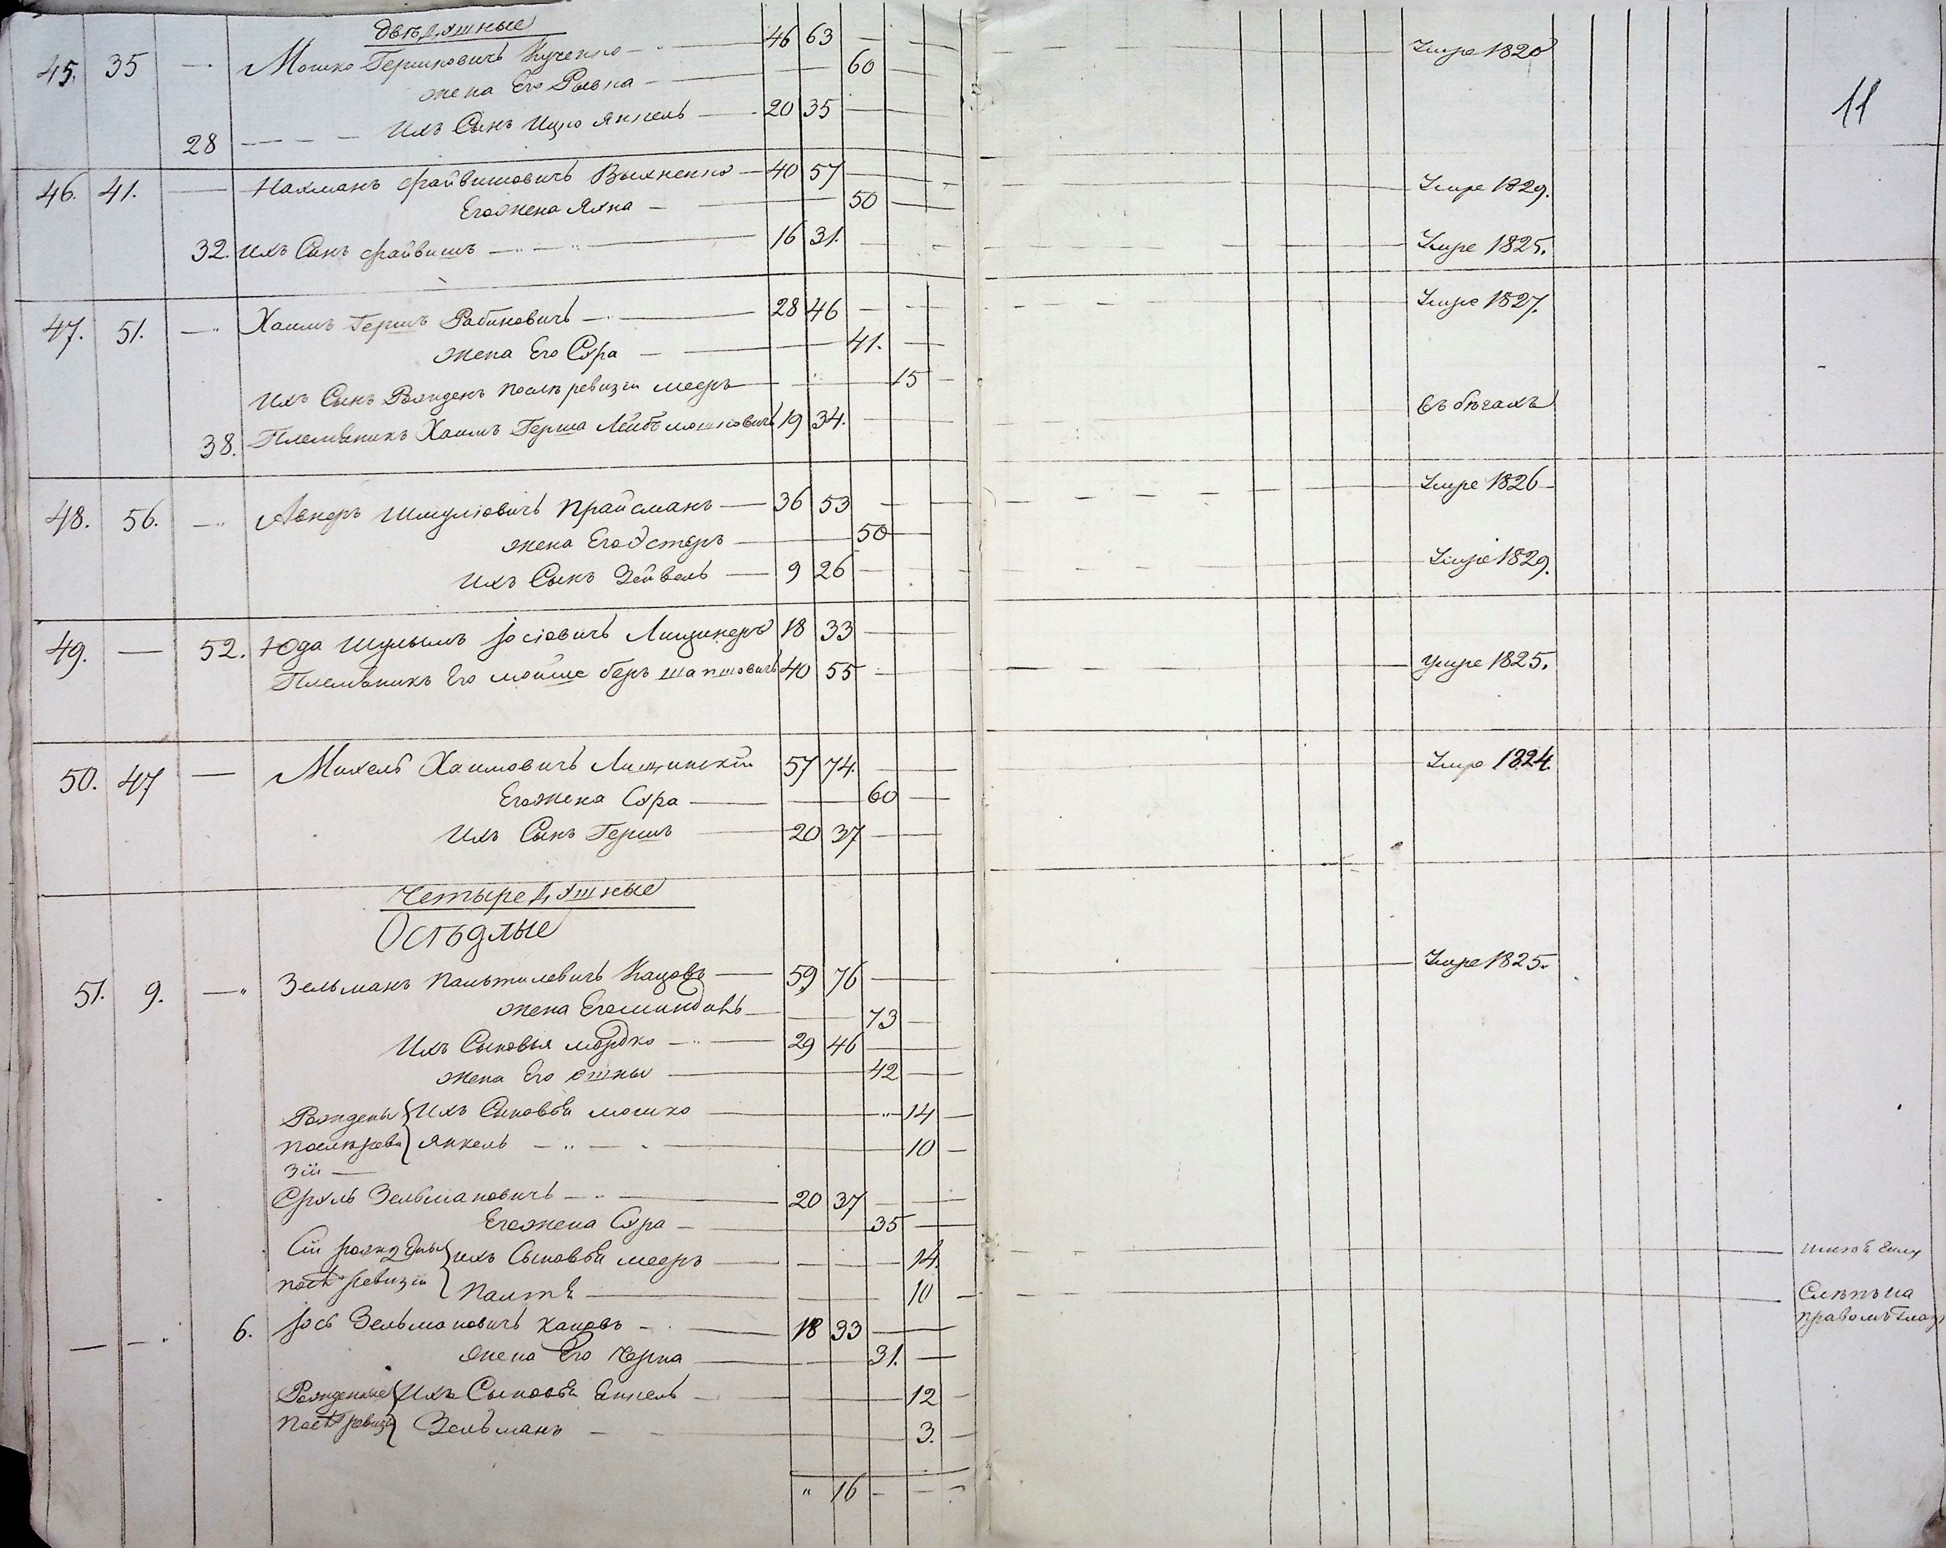 двѣдушные
45. 35 — Мошко Гершковичъ Кученко — 46 63 — Умре 1820
жена Его Рывка — 60
11
28 — Ихъ Сынъ Ицко Янкель — 20 35
46. 41. — Нахманъ Файвишовичъ Выхненко — 40 57 — Умре 1829.
Его жена Яхна — 50
32. Ихъ Сынъ Файвишъ — 16 31. — Умре 1825.
47. 51. — Хаимъ Гершъ Рабиновичъ — 28 46 — Умре 1827.
жена Его Сура — 41.
Ихъ Сынъ Рожденъ послѣ ревизіи Мееръ — 15
38. Племѣникъ Хаимъ Герша Лейбъ Мошковичъ 19 34. — въ бѣгахъ
48. 56. — Авнеръ Шмуліовичъ Прайсманъ — 36 53 — Умре 1826
жена Его Эстеръ — 50
Ихъ Сынъ Зейвель — 9 26 — Умре 1829.
49. — 52. Юда Шулымъ Іосіовичъ Лищинеръ 18 33 —
Племѣникъ Его Мойше Беръ Шапшовичъ 40 55 — Умре 1825.
50. 47 — Михель Хаимовичъ Лищинскій 57 74. — Умре 1824.
Его жена Сура — 60
Ихъ Сынъ Гершъ — 20 37 —
Четыредушные
Осѣдлые
51. 9. — Зельманъ Пальтилевичъ Кацовъ — 59 76 — Умре 1825.
жена Его Миндаль — 73
Ихъ Сыновья Мордко — 29 46 —
жена Его — 42
Рождены Ихъ Сыновья Мошко — 14
послѣ реви Янкель — 10
зіи —
Сруль Зельмановичъ — 20 37 —
Его жена Сура — 35
Сіи рожденые ихъ Сыновья Мееръ — 14.
послѣ ревизіи Палтѣ — 10 — Слѣпъ на
правомъ глазу
6. Іось Зельмановичъ Кацовъ — 18 33 —
жена Его Черна — 31. —
Рожденные Ихъ Сыновья — 12
послѣ ревизіи Зельманъ — 3.
" 16 —